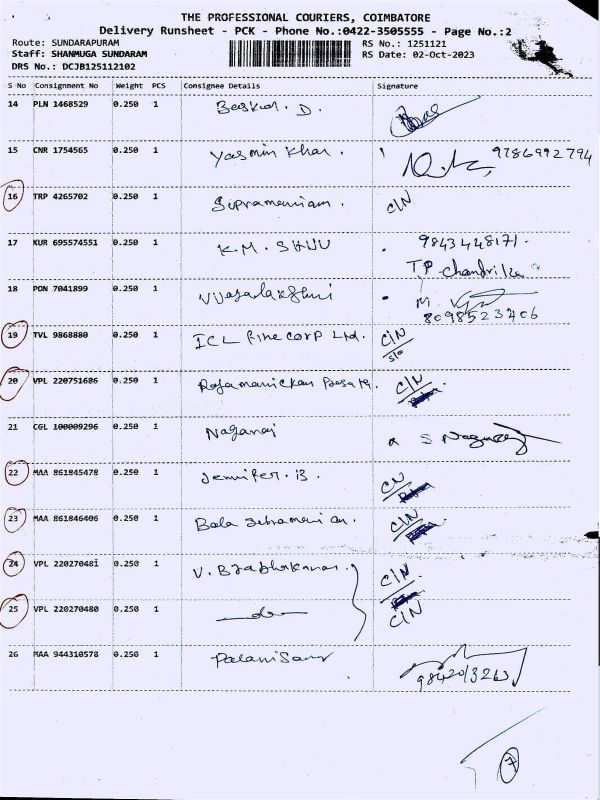 THE PROFESSIONAL COURIERS, COIMBATORE
Delivery Runsheet - PCK - Phone No.:0422-3505555 - Page No.:2
Route: SUNDARAPURAM RS No.: 1251121
Staff: SHANMUGA SUNDARAM RS Date: 02-Oct-2023
DRS No.: DCJB125112102
S No Consignment No Weight PCS Consignee Details Signature
14 PLN 1468529 0.250 1 Baskar. D.
15 CNR 1754565 0.250 1 Yasmin Khan. 9786992794
16 TRP 4265702 0.250 1 Supramaniam. C/N
17 KUR 695574551 0.250 1 K.M. SHIJU 9843448171.
TP. Chandrika
18 PON 7041899 0.250 1 Vijayalakshmi M.
8098523406
19 TVL 9868880 0.250 1 ICL Fine corp Ltd. C/N
S/O
20 VPL 220751686 0.250 1 Rajamanickam C/N
21 CGL 100009296 0.250 1 Nagaraj S Nagaraj
22 MAA 861845478 0.250 1 Jennifer. B. C/N
23 MAA 861846406 0.250 1 Bala Subramanian. C/N
24 VPL 220270481 0.250 1 V. Prabhakaran. C/N
25 VPL 220270480 0.250 1 do C/N
26 MAA 944310578 0.250 1 Palanisamy
7